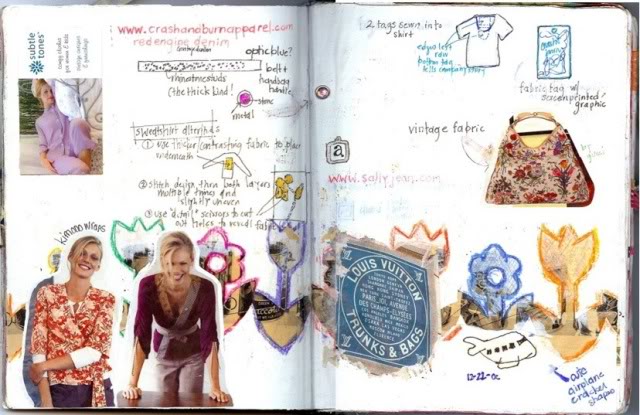 subtle
tones
www.crashandburnapparel.com
redengine denim
optic blue?
belt
handbag
handle
rhinestone studs
(the thick kind!)
stone
metal
sweatshirt alterations
① use thicker contrasting fabric to place
underneath
② stitch design thru both layers
multiple times and
slightly uneven
③ use "detail" scissors to cut
out holes to reveal fabric
kimono wraps
2 tags sewn into
shirt
edges left
raw
bottom tag
tells company story
fabric tag w/
screenprinted
graphic
vintage fabric
a
www.sallyjean.com
LOUIS VUITTON
PARIS
DES CHAMPS-ELYSEES
TRUNKS & BAGS
12-22-02
airplane
cracker
shapes